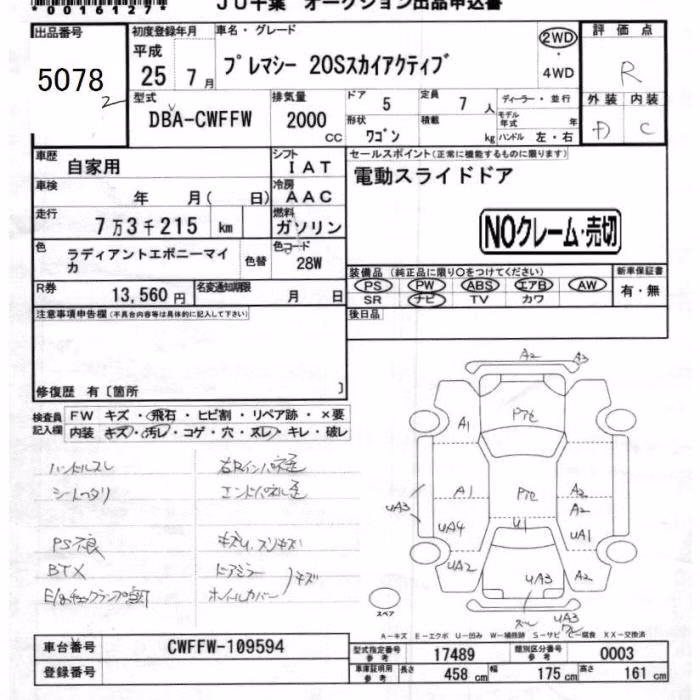 *00161274*
JU千葉 オークション出品申込書
出品番号 5078 2
初度登録年月 平成 25 7月
車名・グレード プレマシー 20Sスカイアクティブ
2WD・4WD
評価点 R
外装 内装 C
型式 DBA-CWFFW
排気量 2000 CC
ドア 5
形状 ワゴン
定員 7人
積載 kg
ディーラー・並行
モデル年式 年式
ハンドル 左・右
車歴 自家用
シフト IAT
車検 年 月( 日)
冷房 AAC
走行 7万3千215 km
燃料 ガソリン
色 ラディアントエボニーマイカ
色替
色コード 28W
R券 13,560円
名変通知期限 月 日
セールスポイント(正常に機能するものに限ります)
電動スライドドア
NOクレーム・売切
装備品(純正品に限り○をつけてください)
PS PW ABS エアB AW
SR ナビ TV カワ
新車保証書 有・無
後日品
注意事項申告欄(不具合内容等は具体的に記入して下さい)
修復歴 有〔箇所 〕
検査員記入欄
FW キズ・飛石・ヒビ割・リペア跡・×要
内装 キズ・汚レ・コゲ・穴・スレ・キレ・破レ
ハンドルスレ
シートヘタリ
PS不良
BTX
E/gチェックランプ点灯
右Rインパネ歪
エンドパネル歪
キズU,スリキズ
ドアミラー
ホイルカバー
キズ
A2 A3
Pセ
A1
A1 Pセ A2
A2
UA3 UA4 U1 UA1
UA2 UA3 A2
UA3
スペア
A-キズ E-エクボ U-凹み W-補修跡 S-サビ C-腐食 XX-交換済
車台番号 CWFFW-109594
登録番号
型式指定番号 参考 17489
類別区分番号 参考 0003
車庫証明用 参考 長さ 458 cm 幅 175 cm 高さ 161 cm